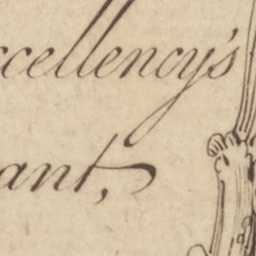 ccellency's
ant,